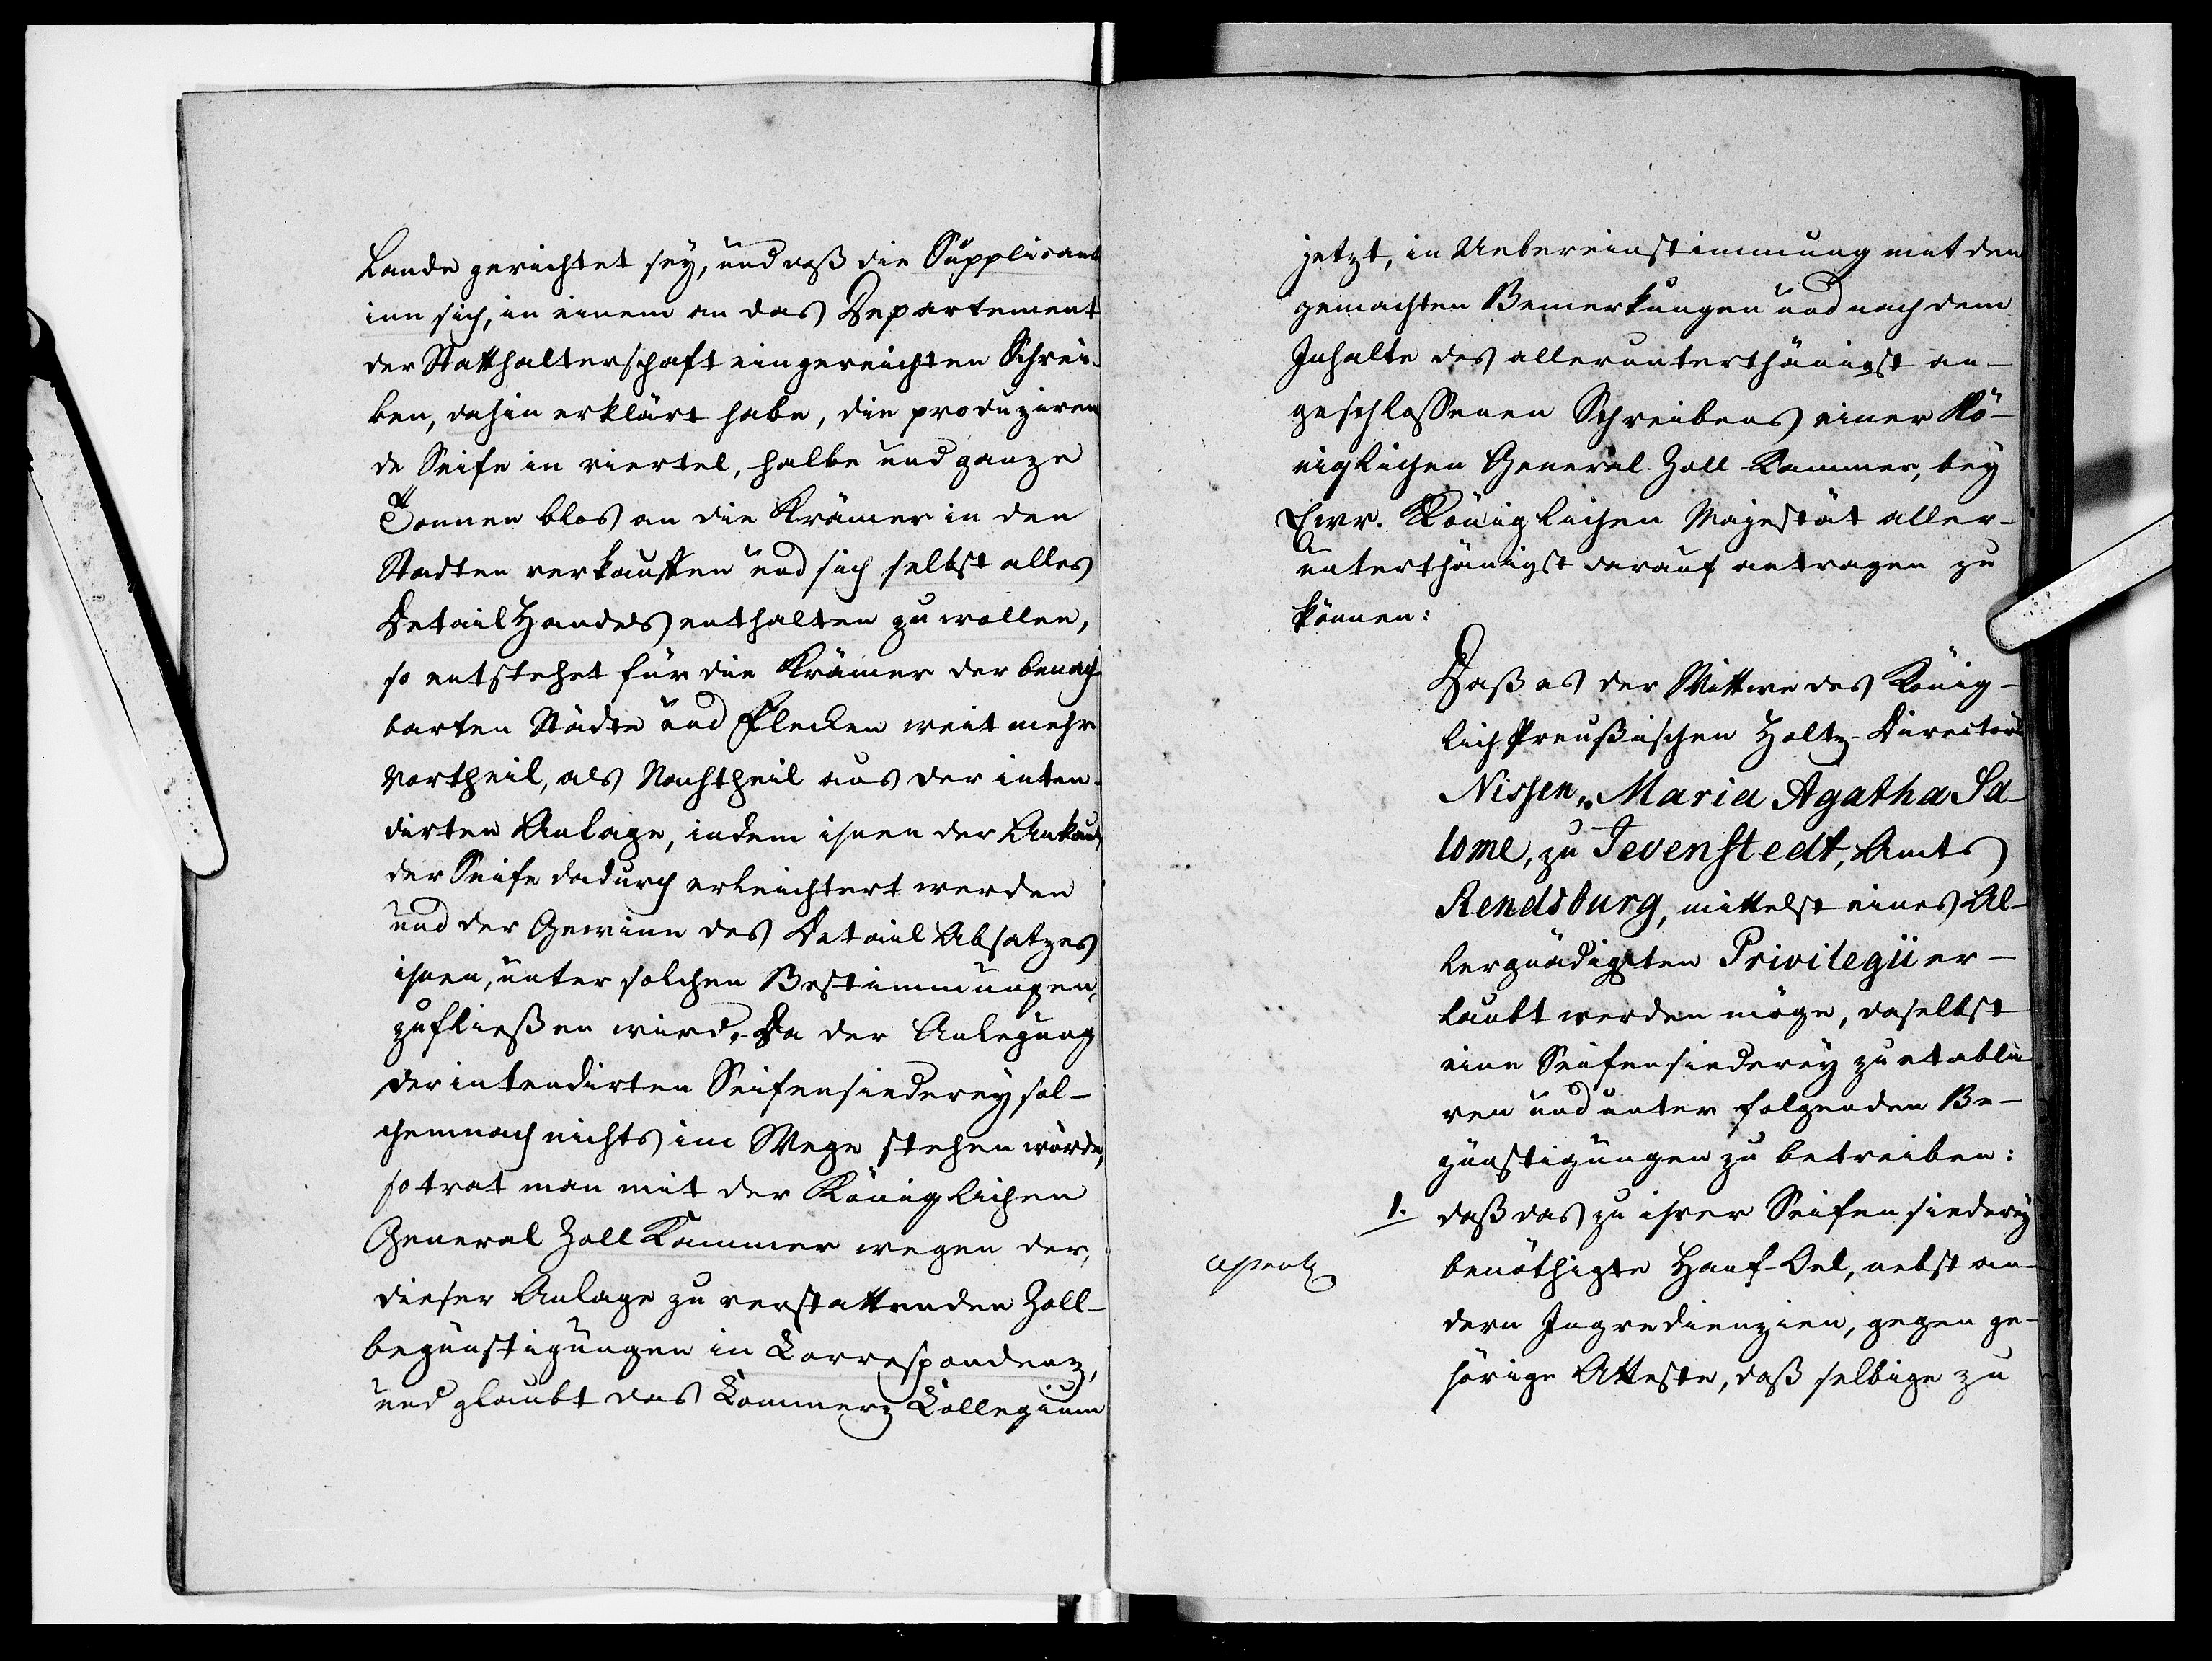 Lande gerichtet sey, und daß die Supplicant
inn sich, in einem an das Departement
der Statthalterschaft eingereichten Schrei-
ben, dahin erklärt habe, die produziren
de Seife in viertel, halbe und ganze
Tonnen blos an die Krämer in den
Stadten verkauffen und sich selbst alles
Detail Handels enthalten zu wollen,
so entstehet für die Krämer der benach-
barten Städte und Flecken weit mehr
Vortheil, als Nachtheil aus der inten-
dirten Anlage, indem ihnen der Ankauf
der Seife dadurch erleichtert werden
und der Gewinn des Detail Absatzes
ihnen, unter solchen Bestimmungen,
zufließen wird. Da der Anlegung
der intendirten Seifensiederey sol-
chemnach nichts im Wege stehen würde,
so trat man mit der Königlichen
General Zoll Kammer wegen der,
dieser Anlage zu verstattenden Zoll-
begünstigungen in Korrespondenz,
und glaubt das Kommerz Kollegium
jetzt, in Uebereinstimmung mit den
gemachten Bemerkungen und nach dem
Inhalte des allerunterthänigst an-
geschlossenen Schreibens einer Kö-
niglichen General Zoll-Kammer, bey
Ewr. Königlichen Majestät aller-
unterthänigst darauf antragen zu
können:
Daß es der Wittwe des König-
lich Preußischen Holtz-Directors
Nissen, Maria Agatha Sa-
lome, zu Jevenstedt, Amts
Rendsburg, mittelst eines Al-
lergnädigsten Privilegii er-
laubt werden möge, daselbst
eine Seifensiederey zu etabli
ren und unter folgenden Be-
günstigungen zu betreiben:
1. daß das zu ihrer Seifensiederey
benöthigte Hanf-Oel, nebst an-
dern Ingredienzien, gegen ge-
hörige Atteste, daß selbige zu